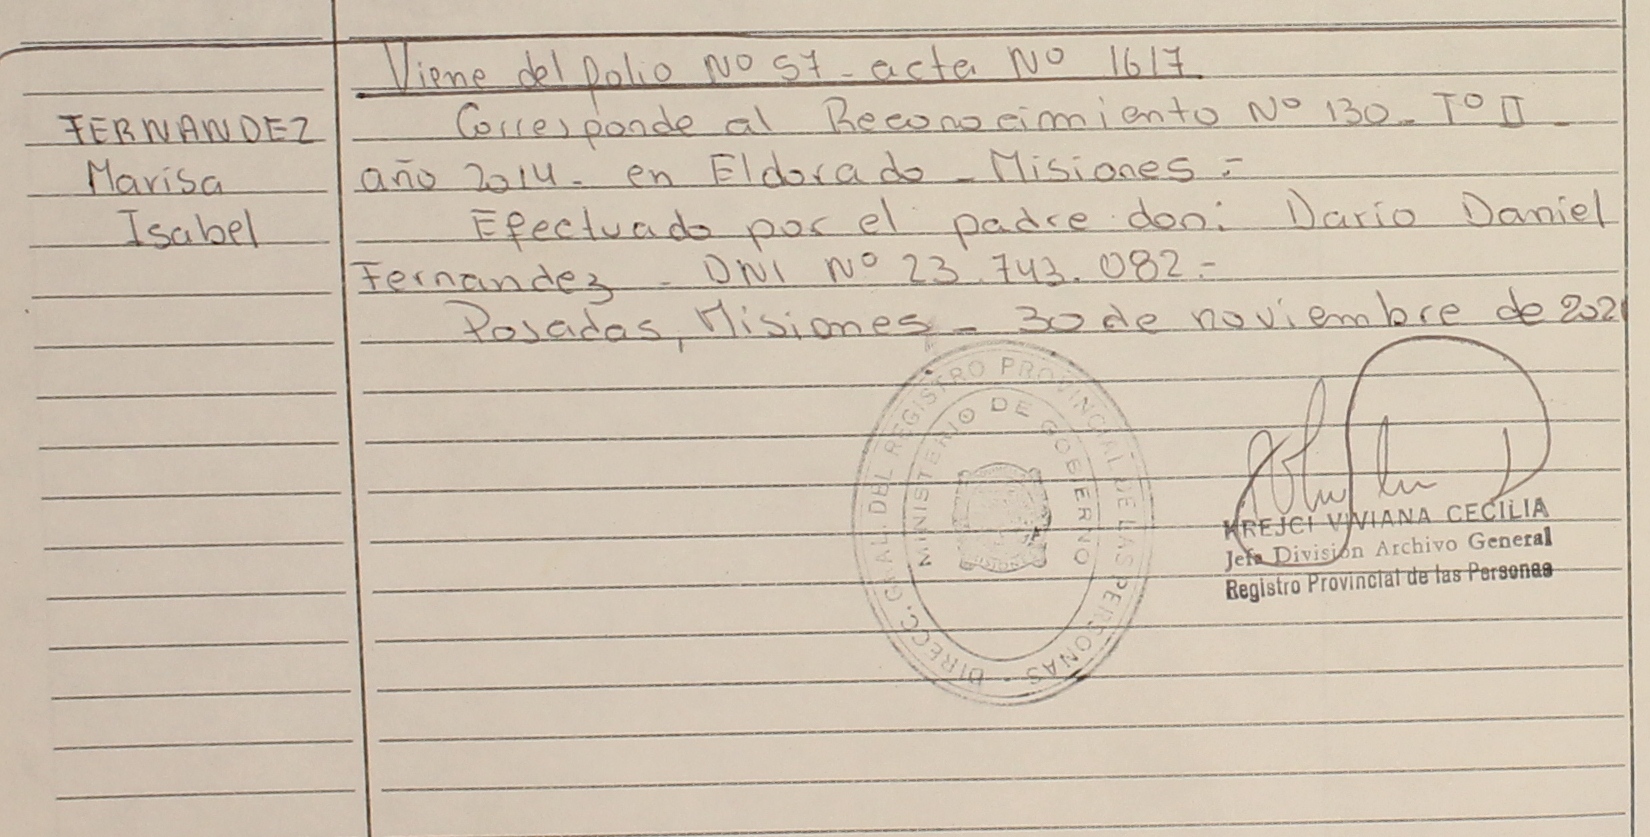 Viene del folio Nº 57 - acta Nº 1617
FERNANDEZ
Marisa
Isabel
Corresponde al Reconocimiento Nº 130 - Tº II -
año 2014 - en Eldorado - Misiones =
Efectuado por el padre don: Dario Daniel
Fernandez - DNI Nº 23.743.082.-
Posadas, Misiones - 30 de noviembre de 202
DIRECC. GRAL. DEL REGISTRO PROVINCIAL DE LAS PERSONAS -
MINISTERIO DE GOBIERNO
KREJCI VIVIANA CECILIA
Jefa División Archivo General
Registro Provincial de las Personas